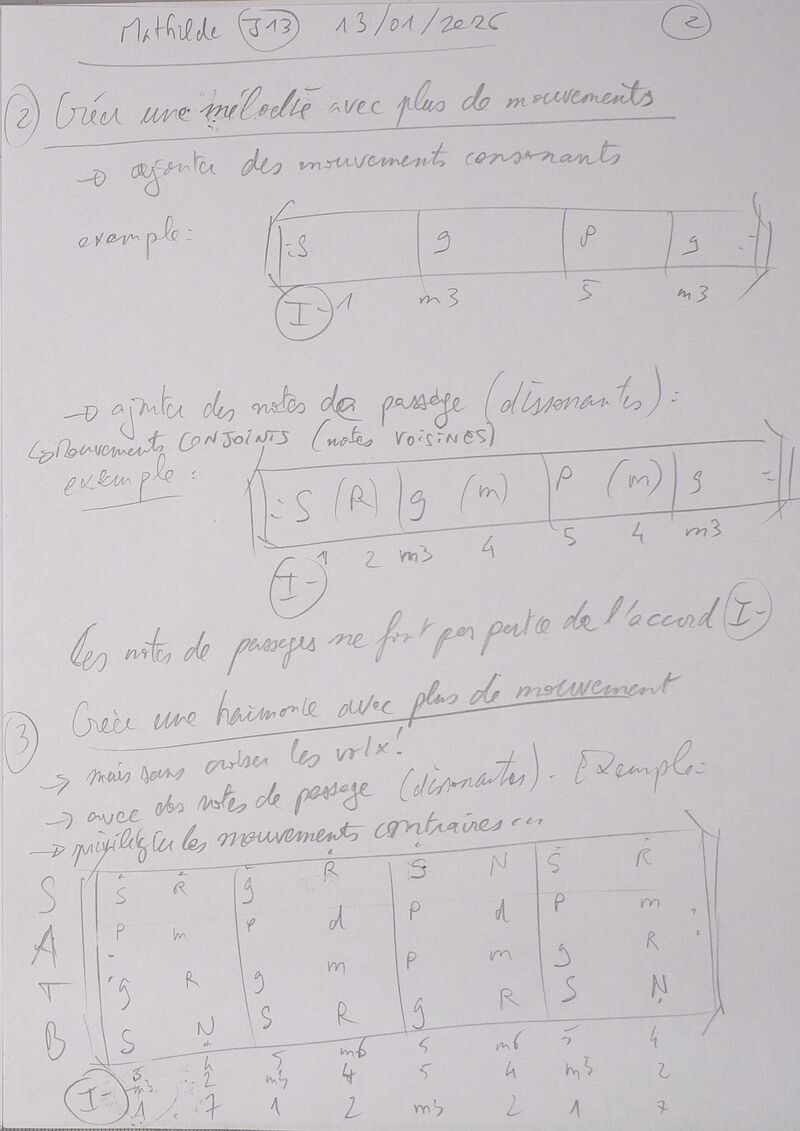 Mathilde J13 13/01/2026 2
2 Créer une mélodie avec plus de mouvements
→ ajouter des mouvements consonants
exemple: S g P g
I- 1 m3 5 m3
→ ajouter des notes de passage (dissonantes):
↳ Mouvements CONJOINTS (notes VOISINES)
exemple: S (R) g (m) P (m) g
I- 1 2 m3 4 5 4 m3
Les notes de passages ne font pas partie de l'accord I-
3 Créer une harmonie avec plus de mouvement
→ mais sans croiser les voix!
→ avec des notes de passage (dissonantes). Exemple:
→ privilégier les mouvements contraires...
S Ṡ Ṙ ġ Ṙ Ṡ N Ṡ Ṙ
A P m P d P d P m
T g R g m P m g R
B S N S R g R S N
5 4 5 m6 5 m6 5 4
m3 2 m3 4 5 4 m3 2
I- 1 7 1 2 m3 2 1 7